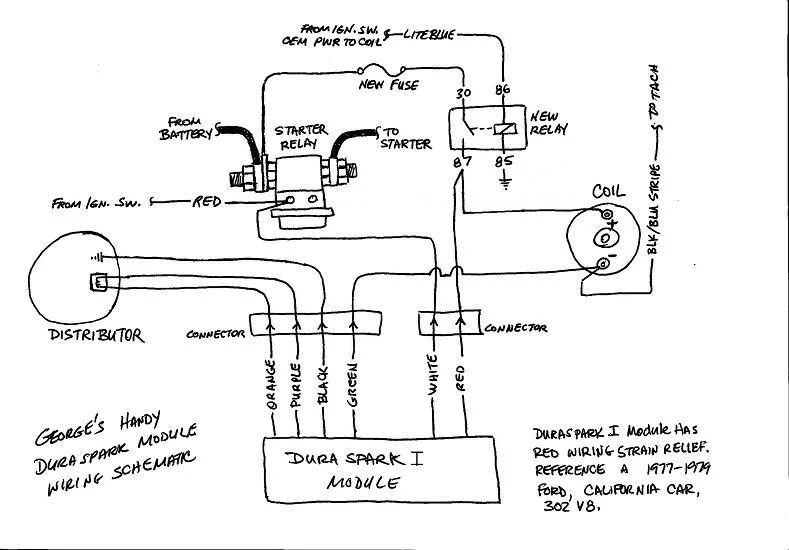 FROM IGN. SW.
OEM PWR TO COIL
LITE BLUE
NEW FUSE
30
86
NEW
RELAY
87
85
FROM
BATTERY
STARTER
RELAY
TO
STARTER
FROM IGN. SW.
RED
COIL
+
-
BLK/BLU STRIPE
TO TACH
DISTRIBUTOR
CONNECTOR
CONNECTOR
ORANGE
PURPLE
BLACK
GREEN
WHITE
RED
GEORGE'S HANDY
DURASPARK MODULE
WIRING SCHEMATIC
DURA SPARK I
MODULE
DURASPARK I MODULE HAS
RED WIRING STRAIN RELIEF.
REFERENCE A 1977-1979
FORD, CALIFORNIA CAR,
302 V8.